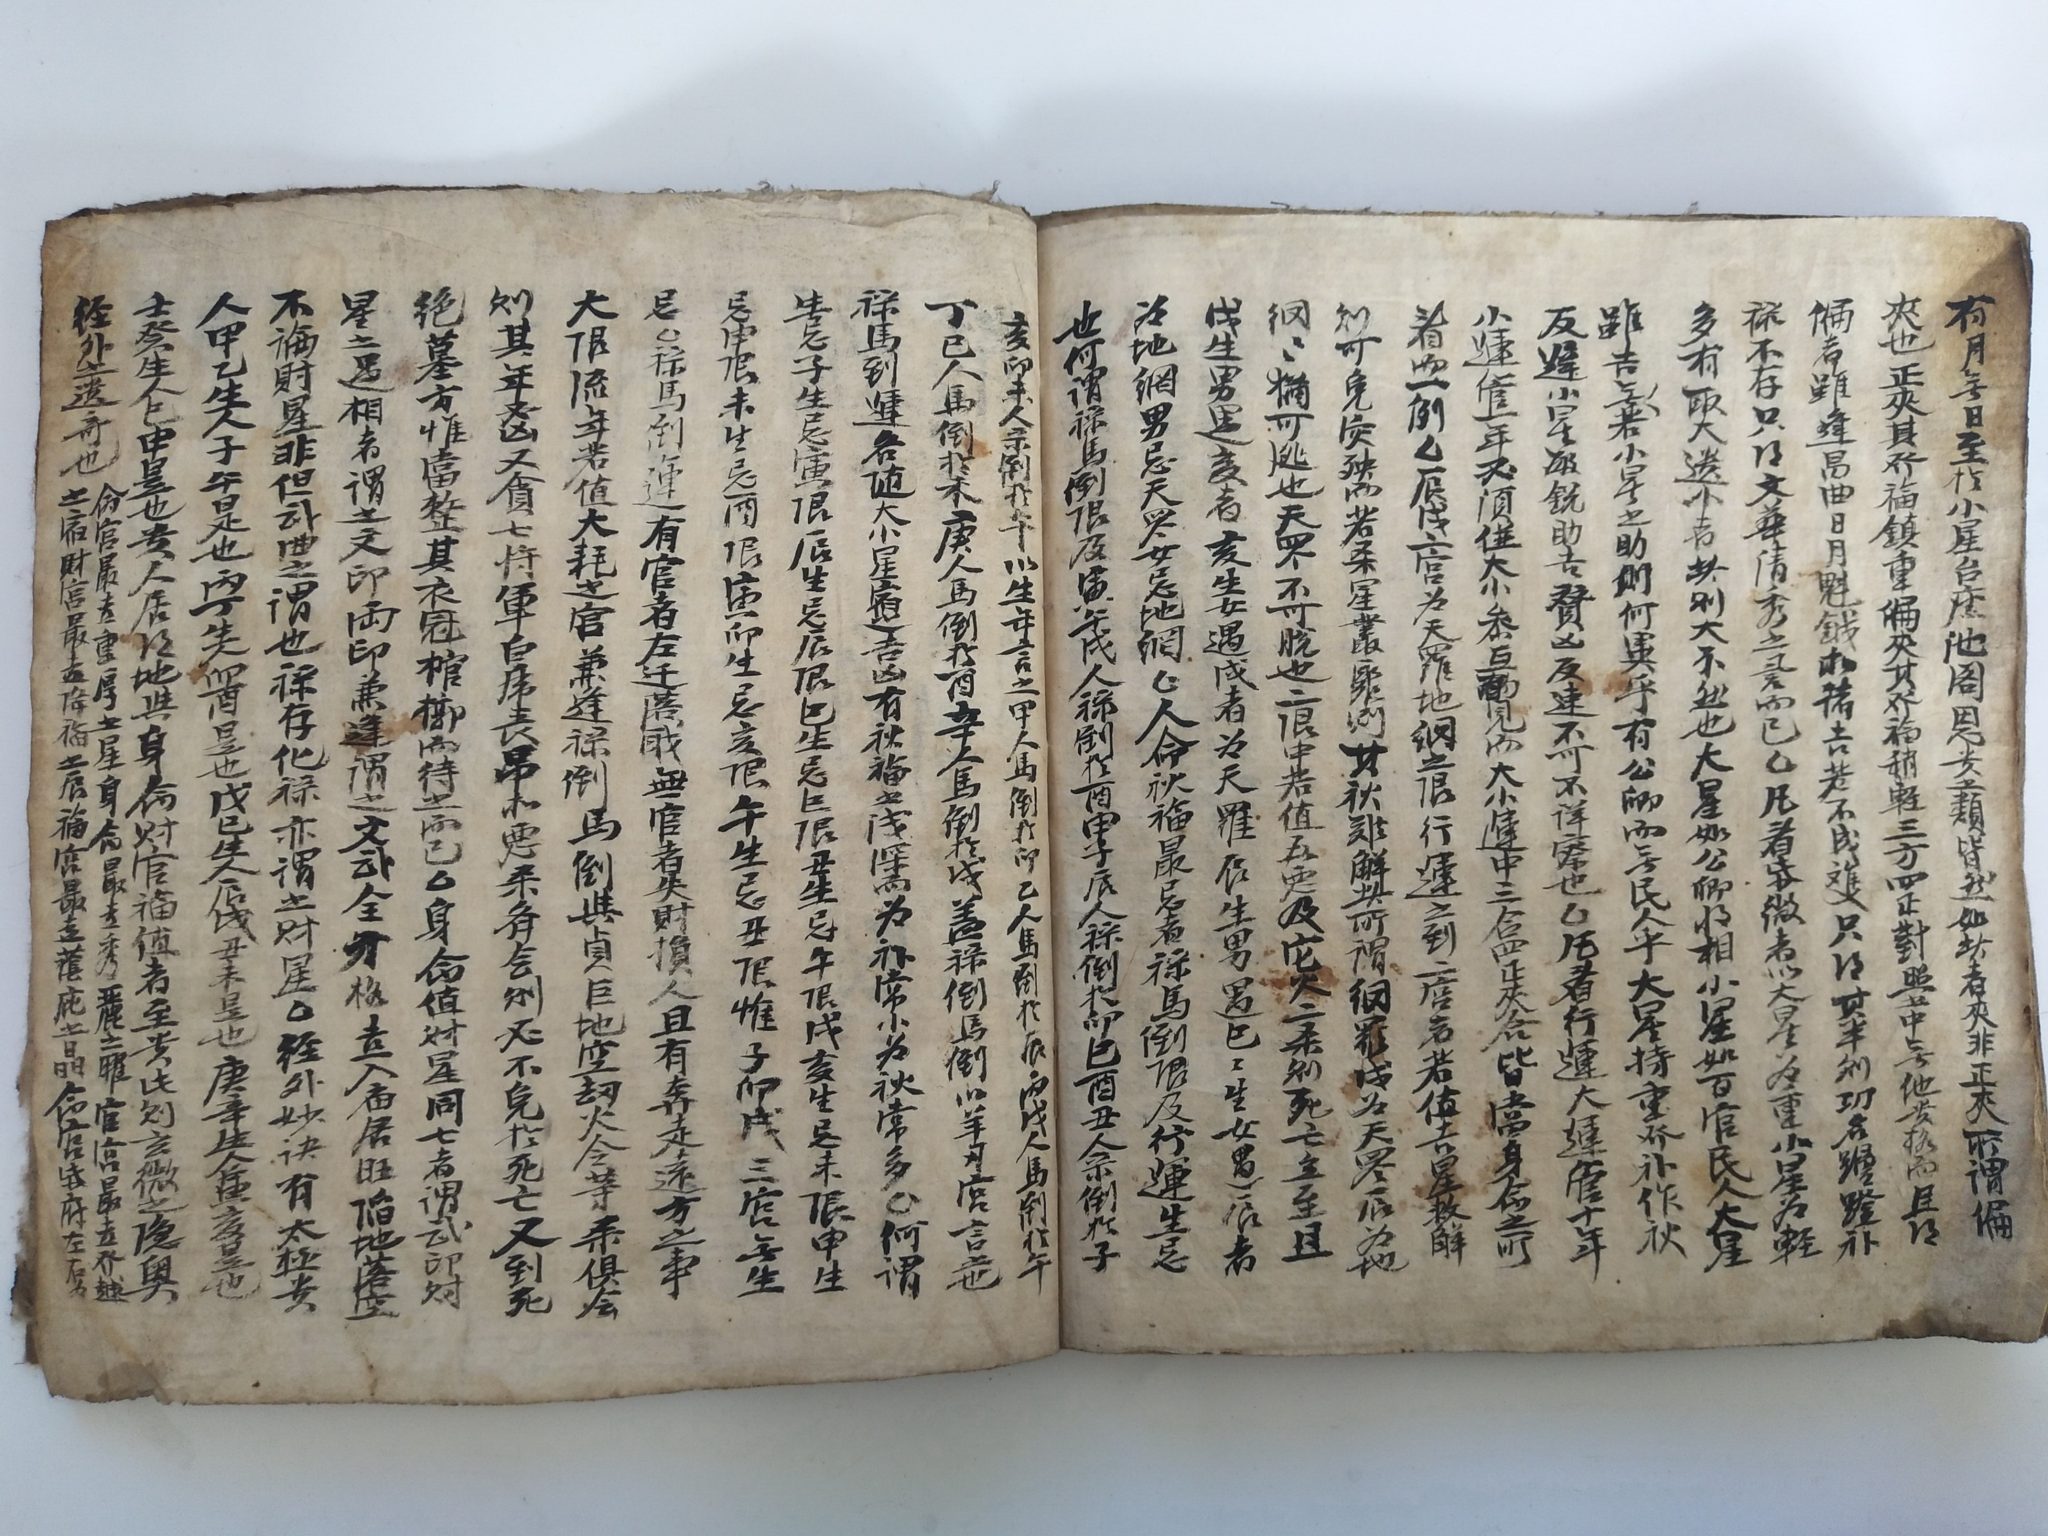 有月無日至於小星台座池閣恩貴之類皆然如此者夾非正夾所謂偏
夾也正夾其爻福鎮重偏夾其爻福稍輕三方四正對照中無他貴格而且得
偏者雖逢昌曲日月魁鉞和諸吉若不成雙只得其半則功名蹭蹬补
祿不存只得文華清秀之名而已乙凡看紫微者以大星为重小星为輕
多有取大遺小者此則大不然也大星如公卿將相小星如百官民人大星
雖吉無小星之助則何異乎有公卿而無民人乎大星持重爻补作秋
反逢小星敏銳助吉賛凶反速不可不詳察也乙凡看行運大運管十年
小運管一年不須併大小參互見而大小運中三合四正夾合皆當身命之所
着而一例乙辰戌二宮为天羅地網之限行運之到二宮者若值吉星救解
則可免災殃而若柔星叢聚則其秋難解其所謂網罗戌为天罗辰为地
網網猶可逃也天罗不可脫也二限中若值五鬼及陀火二柔則死亡立至且
戌生男遇亥者亥生女遇戌者为天羅辰生男遇巳巳生女遇辰者
为地網男忌天罗女忌地網乙人命秋福最忌者祿馬倒限及行運生忌
也何謂祿馬倒限及寅午戌人祿倒於酉申子辰人祿倒於卯巳酉丑人祿倒於子
亥卯未人祿倒於午以生年言之甲人馬倒於卯乙人馬倒於辰丙戊人馬倒於午
丁己人馬倒於未庚人馬倒於酉辛人馬倒於戌盖祿倒馬倒以羊刃宮言之也
祿馬到運各随大小星宿之吉凶有秋福之浅深而为补常小为秋常多乙何謂
生忌子生忌寅限辰生忌辰限巳生忌巳限丑生忌午限戌亥生忌未限申生
忌申限未生忌酉限寅卯生忌亥限午生忌丑限惟子卯戌三宮無生
忌乙祿馬倒運有官者左迁落職無官者失財損人且有奔走遠方之事
大限流年若值大耗之宮兼逢祿倒馬倒與貞巨地空劫火令等柔俱会
則其年必凶又貪七将軍白虎丧吊和悪柔俱会則必不免於死亡又到死
絕墓方惟當整其衣冠棺槨而待之而已乙身命值財星同七者謂武印財
星之遇相者謂之文印両印兼逢謂之文武全才格吉入庙居旺陷地落空
不論財星非但武曲之謂也祿存化祿亦謂之財星乙經外妙诀有太極貴
人甲乙生人子午是也丙丁生卯酉是也戊己生人辰戌丑未是也庚辛生人寅亥是也
壬癸生人巳申是也贵人居得地與身命財官福值者至贵此則玄微之隐奥
經外之遺奇也
命宮最吉重厚之星身命最吉秀麗之曜官宮最吉爻越
之宿財宮最吉降福之辰福宮最吉蔭庇之晶命宮紫府左右为